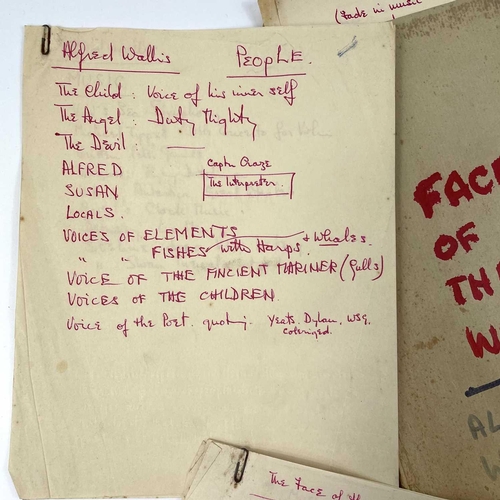 (fade in music
Alfred Wallis PEOPLE.
The Child : Voice of his inner self
The Angel : Duty Mighty
The Devil :
ALFRED
Captn Craze
SUSAN
The Interpreter.
LOCALS.
VOICES OF ELEMENTS
" " FISHES with Harps. + Whales.
VOICE OF THE ANCIENT MARINER (Gulls)
VOICES OF THE CHILDREN
Voice of the Poet. quoting. Yeats. Dylan. WSG.
FACE
OF
TH
W
AL
The Face of th